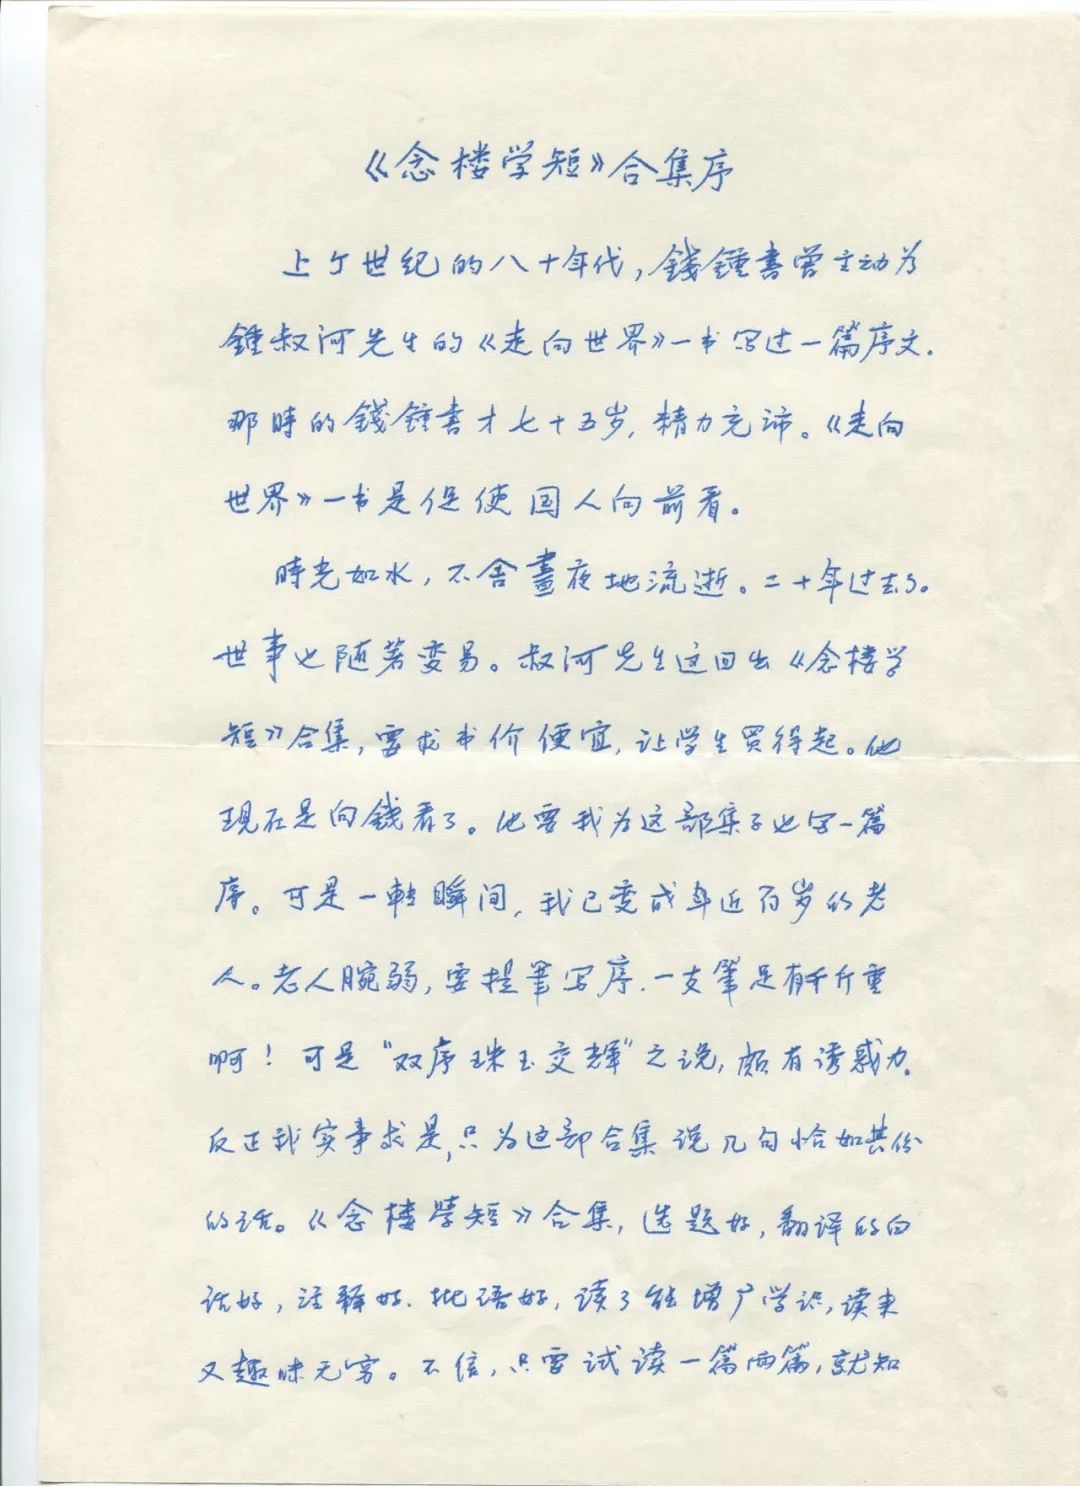 《念楼学短》合集序
上个世纪的八十年代，錢鍾書曾主动为
鍾叔河先生的《走向世界》一书写过一篇序文.
那時的錢鍾書才七十五岁,精力充沛。《走向
世界》一书是促使国人向前看。
時光如水，不舍晝夜地流逝。二十年过去了。
世事也随著变易。叔河先生这回出《念楼学
短》合集,要求书价便宜,让学生買得起。他
現在是向錢看了。他要我为这部集子也写一篇
序。可是一轉瞬间,我已变成年近百岁的老
人。老人腕弱,要提筆写序.一支筆足有千斤重
啊！可是“双序珠玉交輝”之说,頗有诱惑力.
反正我实事求是,只为这部合集说几句恰如其份
的话。《念楼學短》合集,选题好,翻译的白
话好，注释好.批语好,读了能增广学识,读来
又趣味无穷。不信,只要试读一篇两篇,就知